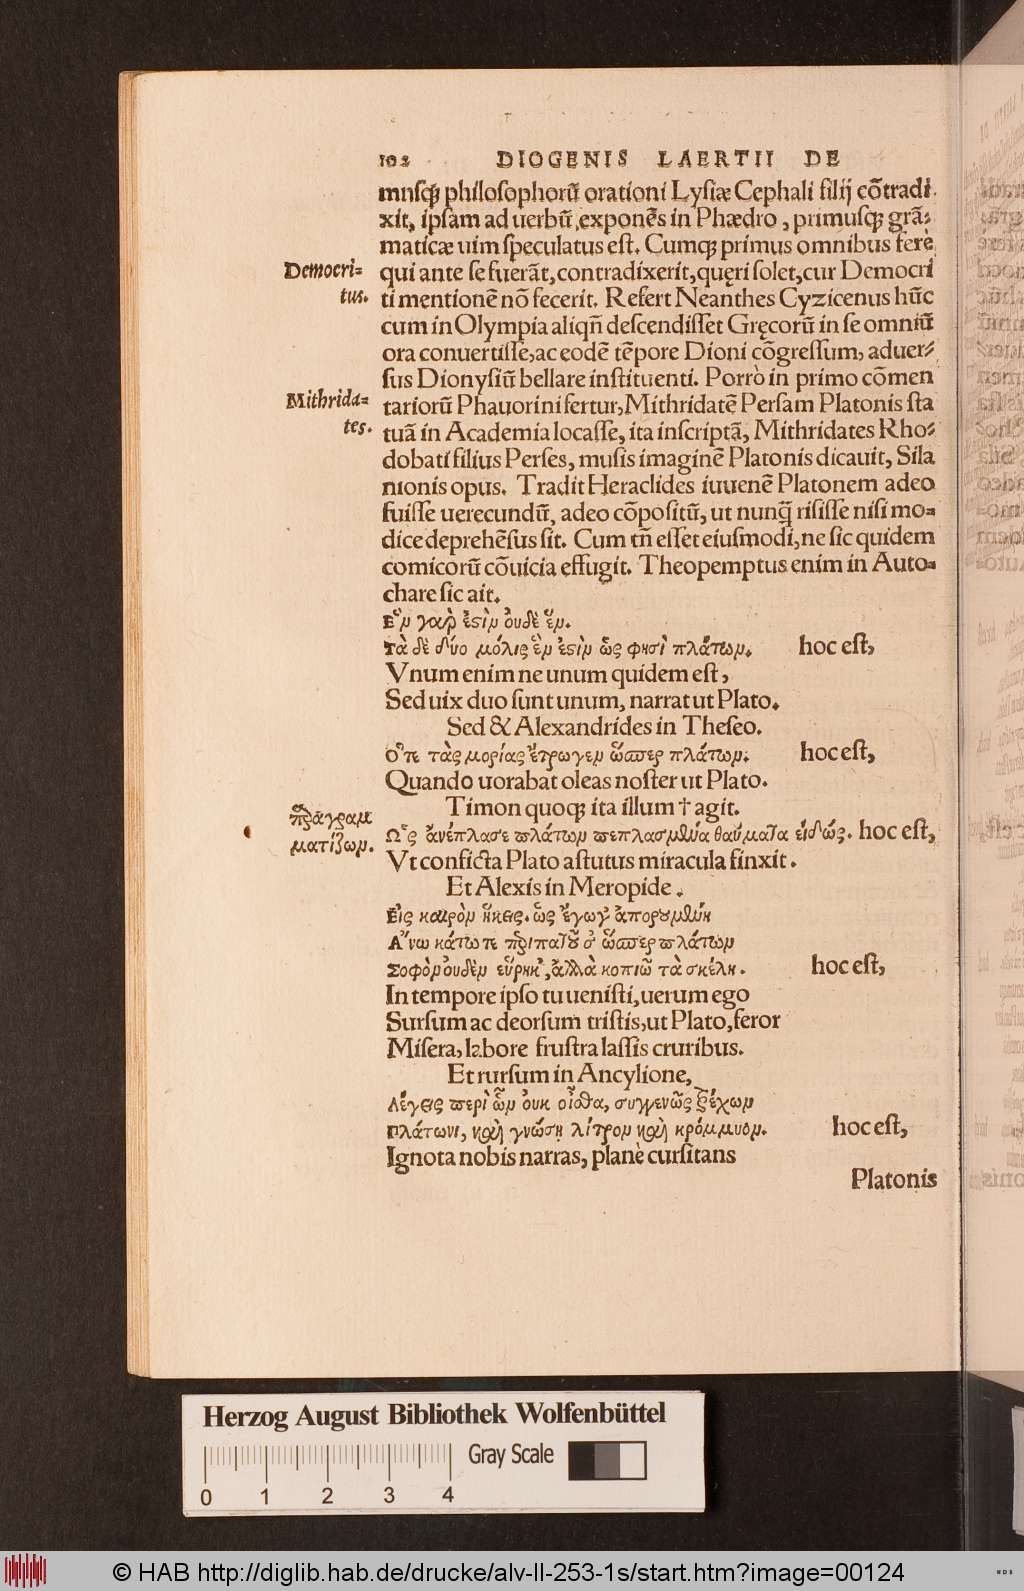 102 DIOGENIS LAERTII DE
musq́ꝫ philosophorũ orationi Lysiæ Cephali filij cõtradi
xit, ipsam ad uerbũ exponẽs in Phædro, primusq́ꝫ grã-
maticæ uim speculatus est. Cumq́ꝫ primus omnibus ferè
Democri=
qui ante se fuerãt, contradixerit, quęri solet, cur Democri
tus.
ti mentionẽ nõ fecerit. Refert Neanthes Cyzicenus hũc
cum in Olympia aliqñ descendisset Gręcorũ in se omniũ
ora conuertisse, ac eodẽ tẽpore Dioni cõgressum, aduer-
sus Dionysiũ bellare instituenti. Porrò in primo cõmen
Mithrida=
tariorũ Phauorini fertur, Mithridatẽ Persam Platonis sta
tes.
tuã in Academia locasse, ita inscriptã, Mithridates Rho-
dobati filius Perses, musis imaginẽ Platonis dicauit, Sila
nionis opus. Tradit Heraclides iuuenẽ Platonem adeo
fuisse uerecundũ, adeo cõpositũ, ut nunq̃ risisse nisi mo=
dice deprehẽsus sit. Cum tñ esset eiusmodi, ne sic quidem
comicorũ cõuicia effugit. Theopemptus enim in Auto=
chare sic ait.
Ἓν γαρ ἐςὶν ὀυδὲ ἕν.
Τὰ δὲ δύο μόλις ἓν ἐςὶν ὥς φησὶ πλάτων. hoc est,
Vnum enim ne unum quidem est,
Sed uix duo sunt unum, narrat ut Plato.
Sed & Alexandrides in Theseo.
Ὅτε τὰς μορίας ἔτρωγεν ὥσπερ πλάτων. hoc est,
Quando uorabat oleas noster ut Plato.
Timon quoq́ꝫ ita illum † agit.
πραγραμ
Ὡς ἀνέπλασε πλάτων πεπλασμένα θαύματα εἰδώς. hoc est,
ματίζων.
Vt conficta Plato astutus miracula finxit.
Et Alexis in Meropide.
Εἰς καιρὸν ἥκεις. ὡς ἔγωγ' ἀπορουμένη
Ἄνω κάτω τε περιπατοῦσ' ὥσπερ πλάτων
Σοφὸν ὀυδὲν εὕρηκ', ἀλλὰ κοπιῶ τὰ σκέλη. hoc est,
In tempore ipso tu uenisti, uerum ego
Sursum ac deorsum tristis, ut Plato, feror
Misera, labore frustra lassis cruribus.
Et rursum in Ancylione,
Λέγεις περὶ ὧν ὀυκ οἶσθα, συγγενῶς τρέχων
Πλάτωνι, καὶ γνώσῃ λίτρον καὶ κρόμμυον. hoc est,
Ignota nobis narras, planè cursitans
Platonis
Herzog August Bibliothek Wolfenbüttel
Gray Scale
0 1 2 3 4
© HAB http://diglib.hab.de/drucke/alv-ll-253-1s/start.htm?image=00124